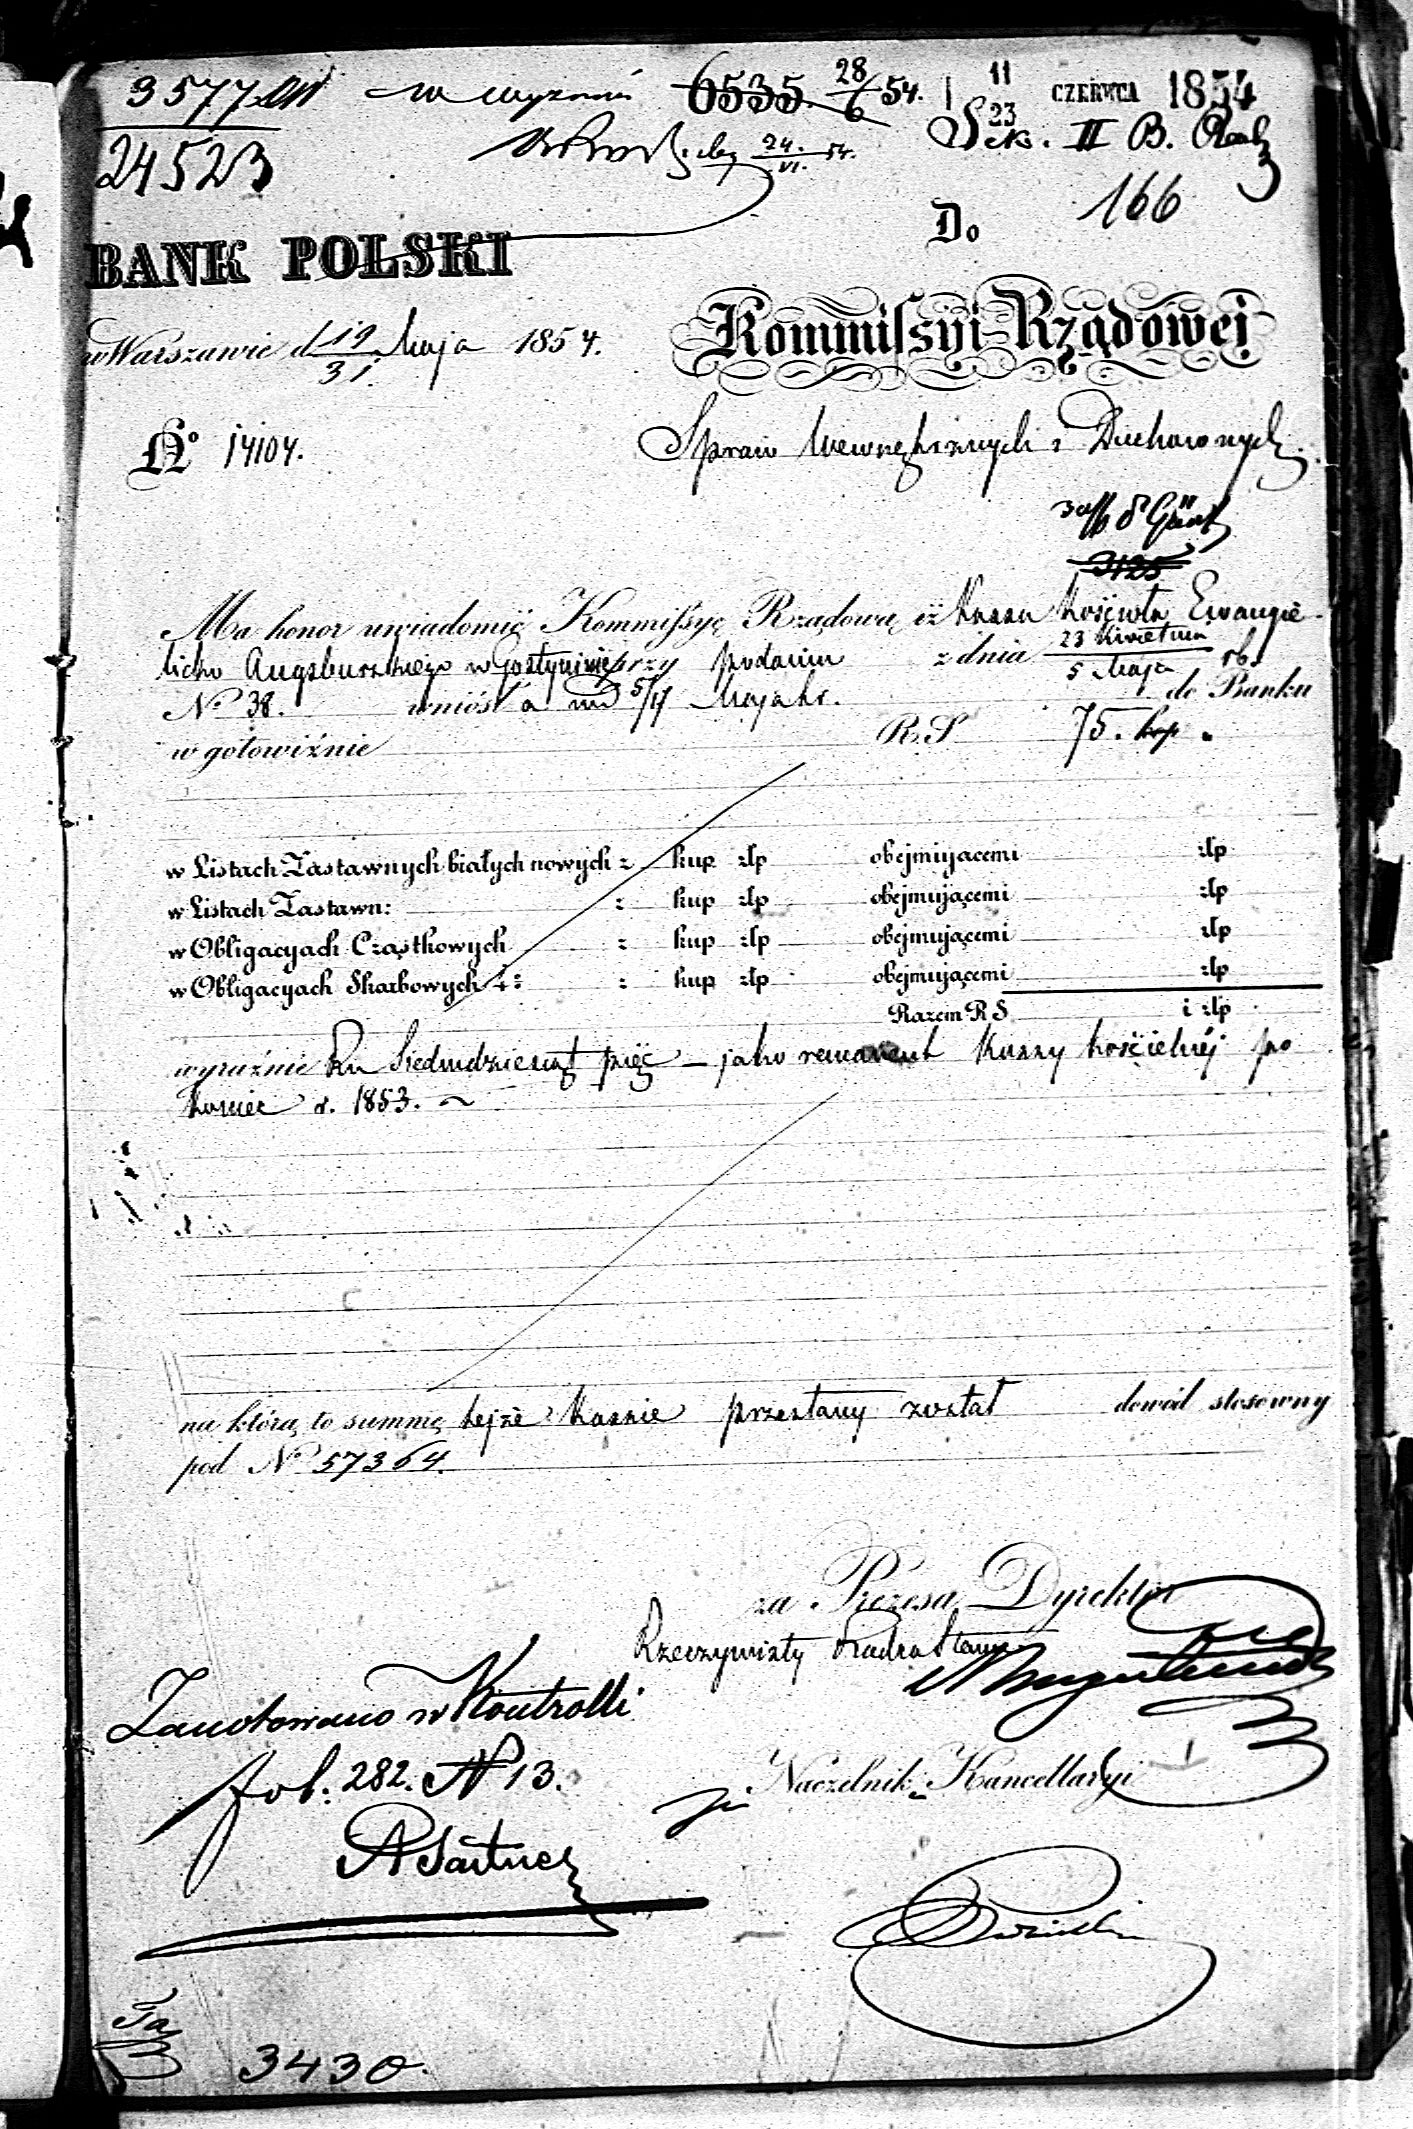 3577
24523
6535 28/6 54.
11/23 CZERWCA 1854
Sek. II B.
24./VI. 54.
166
BANK POLSKI
Do
w Warszawie d 19/31. Maja 1854.
Kommissyi Rządowej
No 14104.
Spraw Wewnętrznych i Duchownych.
3125
Ma honor uwiadomić Kommissyę Rządową iż Kassa Kościoła Ewangie-
licko Augsburskiego w Gostyninie przy podaniu z dnia 23 Kwietnia/5 Maja rb.
No 38. wniósła na d 5/17 Maja br. do Banku
w gotowiźnie R.S 75. kop
w Listach Zastawnych białych nowych : kup złp obejmującemi złp
w Listach Zastawn: : kup złp obejmującemi złp
w Obligacyach Cząstkowych : kup złp obejmującemi złp
w Obligacyach Skarbowych : kup złp obejmującemi złp
Razem R S i złp
wyraźnie Rs Siedmdziesiąt pięć – jako remanent Kassy kościelnej po
koniec r. 1853.
na którą to summę tejże Kassie przesłany został dowód stosowny
pod No 57364.
za Prezesa, Dyrektor
Rzeczywisty Radca Stanu
Zanotowano w Kontrolli
fol: 282. No 13.
Naczelnik Kancellaryi
3430.